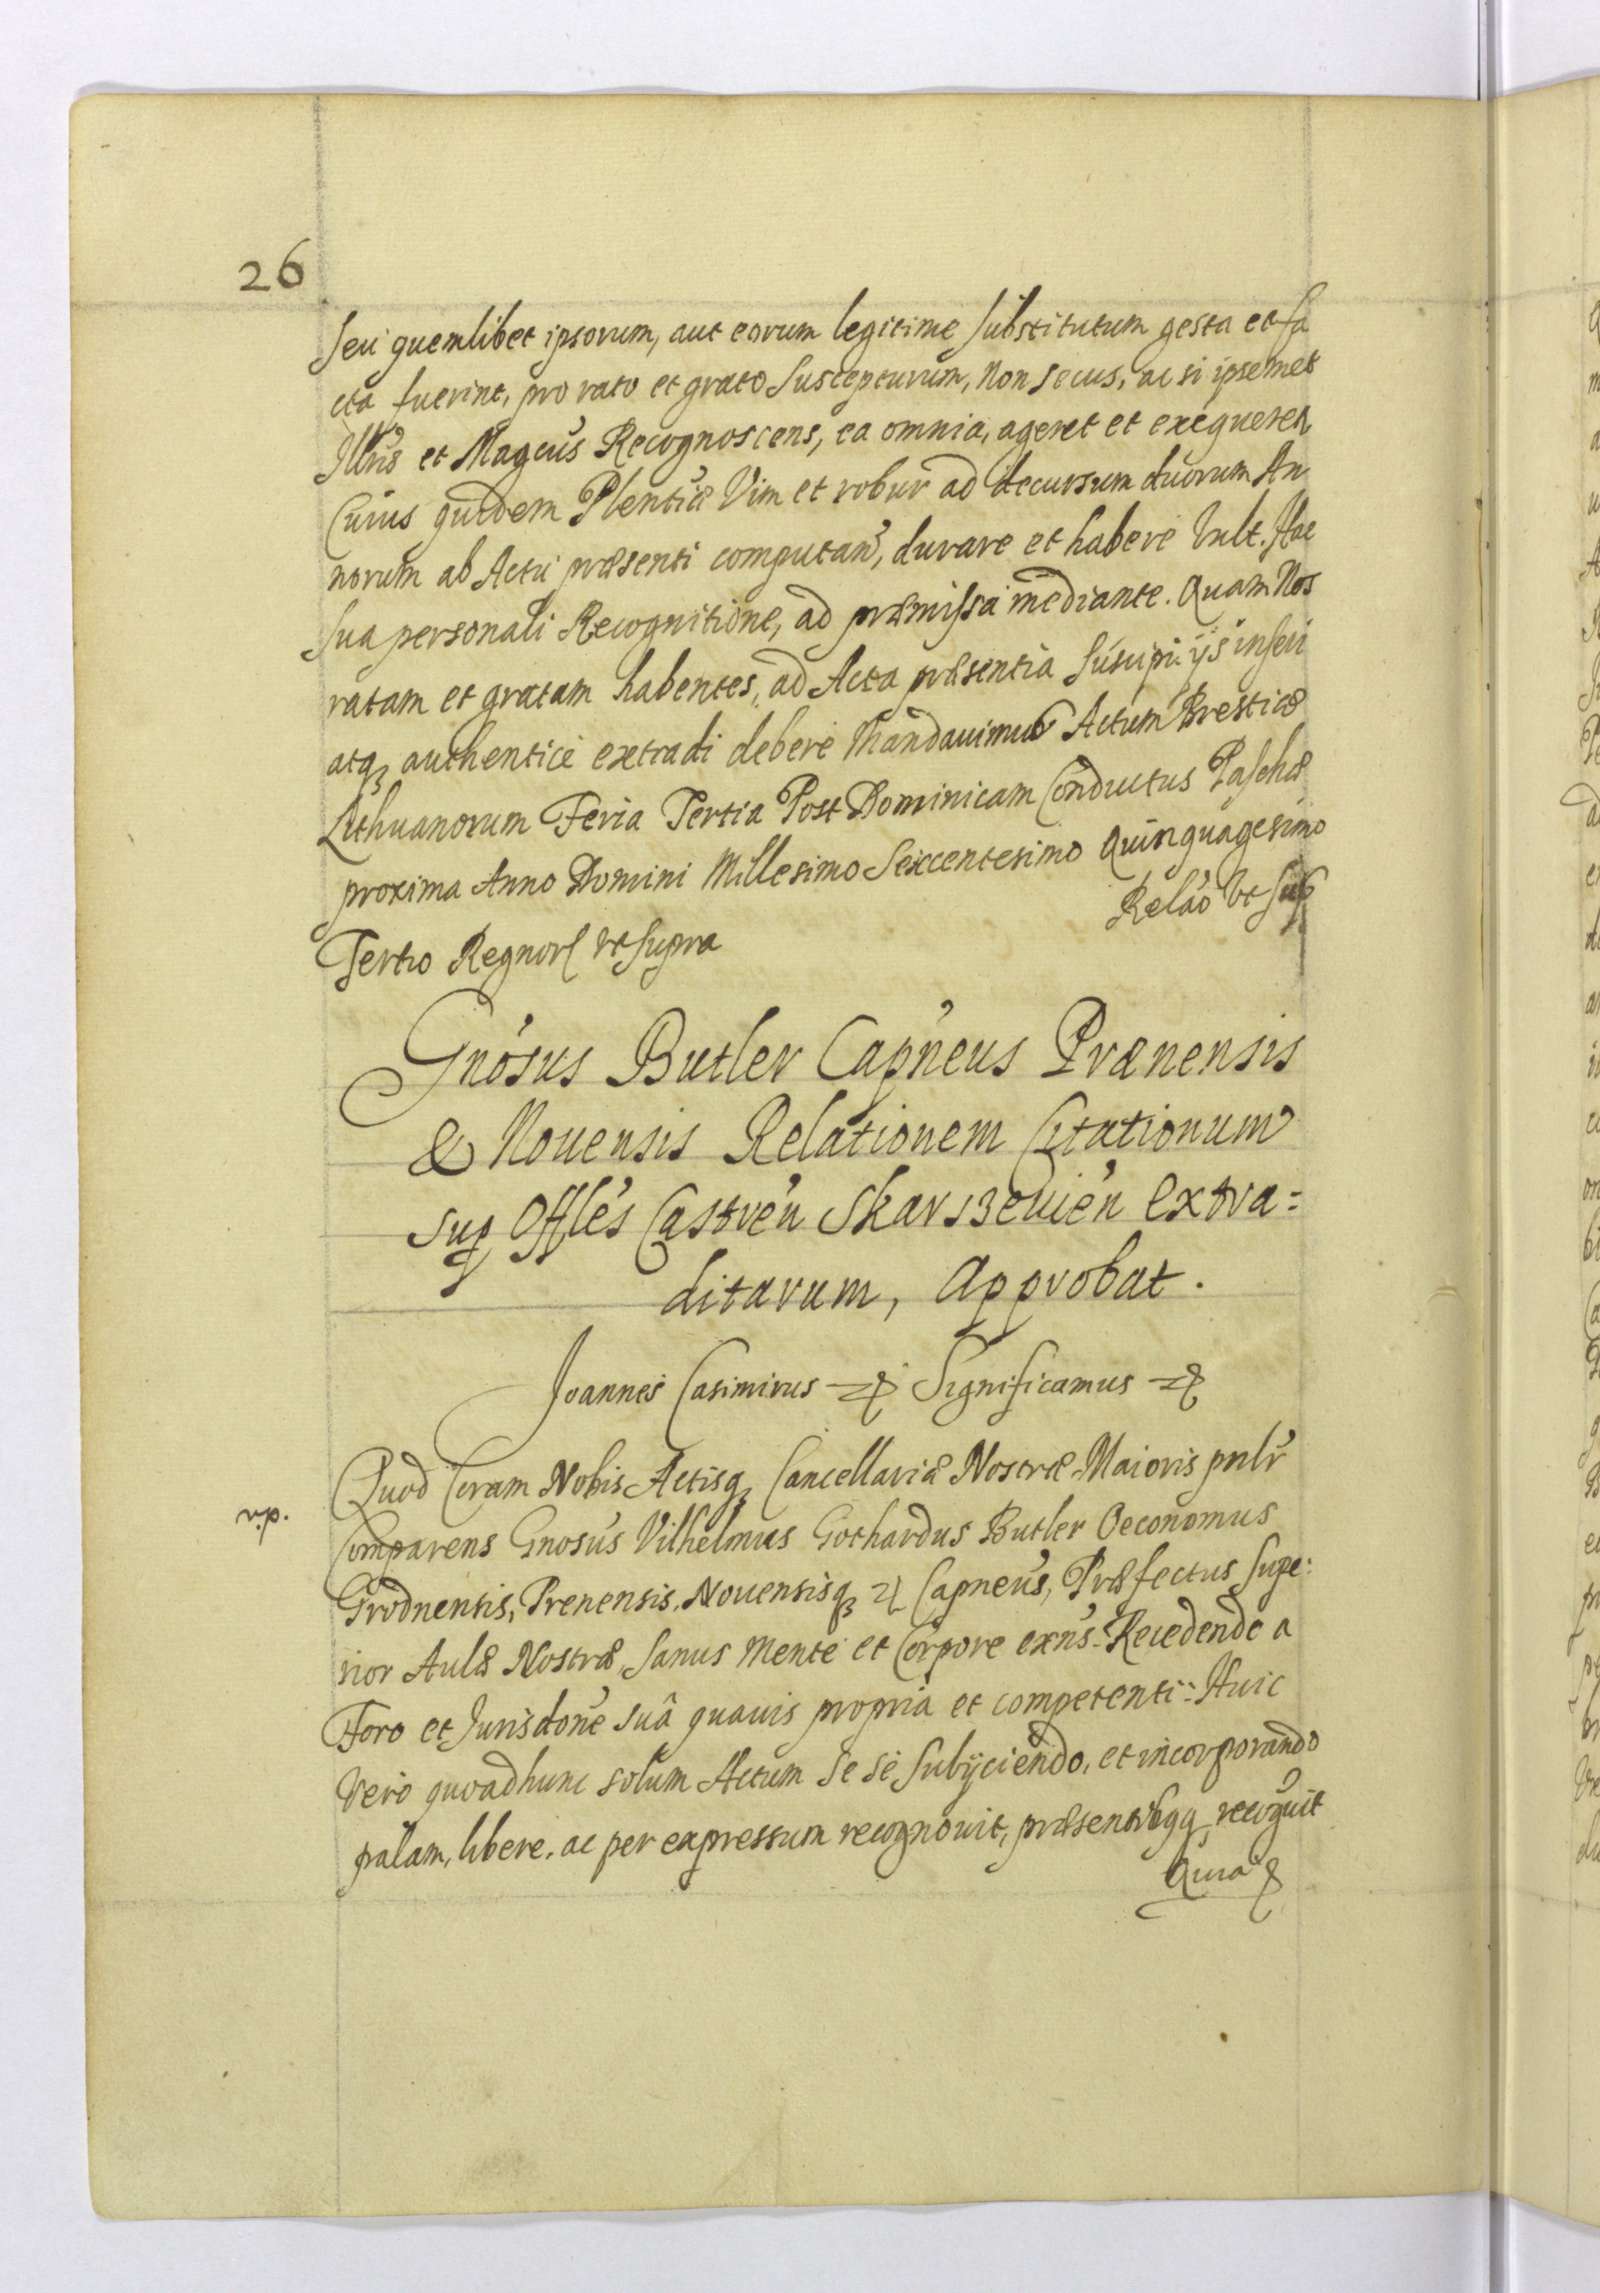 26
Seu quemlibet ipsorum, aut eorum legitime Substitutum gesta et fa
cta fuerint, pro rato et grato Suscepturum, Non secus, ac si ipsemet
Illris et Magcus Recognoscens, ea omnia, ageret et exequeret
Cuius quidem Plentiæ Vim et robur ad decursum duorum An
norum ab Actu præsenti computan, durare et habere Vult. Hac
sua personali Recognitione, ad præmissa mediante. Quam Nos
ratam et gratam habentes, ad Acta præsentia Suscipi ijs inseri
atq authentice extradi debere Mandauimus Actum Brestiæ
Lithuanorum Feria Tertia Post Dominicam Conductus Paschæ
proxima Anno Domini Millesimo Sexcentesimo Quinquagesimo
Tertio Regnor vt supra
Relao Vt sup
Gnosus Butler Capneus Prænensis
& Nouensis Relationem Citationum
sup Offles Castren Skarszeuien extra=
ditarum, approbat.
Joannes Casimirus Significamus
Quod Coram Nobis Actisq Cancellariæ Nostræ Maioris pnlr
v.p.
Comparens Gnosus Vilhelmus Gothardus Butler Oeconomus
Grodnensis, Prenensis, Nouensisq Capneus, Præfectus Supe:
rior Aulæ Nostræ, Sanus Mente et Corpore exns. Recedendo a
Foro et Jurisdone suâ quauis propria et competenti: Huic
Vero quoad hunc solum Actum se se Subijciendo, et incorporando
palam, libere, ac per expressum recognouit, præsentibqq recoguit
Quia